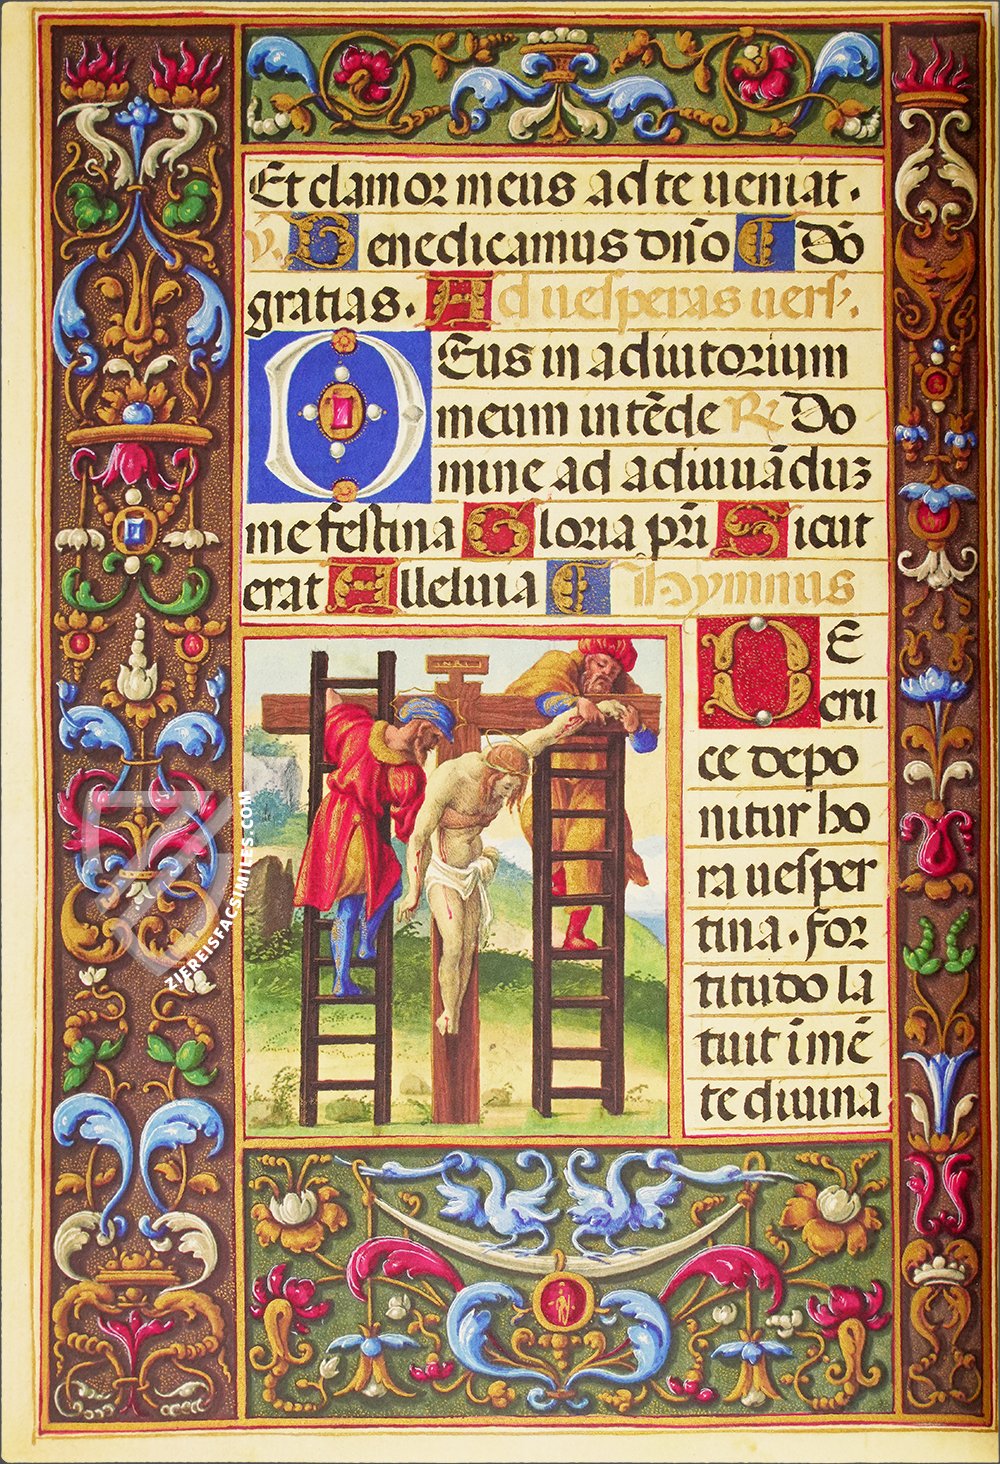 Et clamor meus ad te ueniat.
v. Benedicamus dño T Dõ
gratias. Ad uesperas uers.
Deus in adiutorium
meum intẽde R Do
mine ad adiuuãduz
me festina Gloria pri Sicut
erat Alleluia T Hymnus
DE
cru
ce depo
nitur ho
ra uesper
tina. for
titudo la
tuit ĩ mẽ
te diuina
ZIEREISFACSIMILES.COM